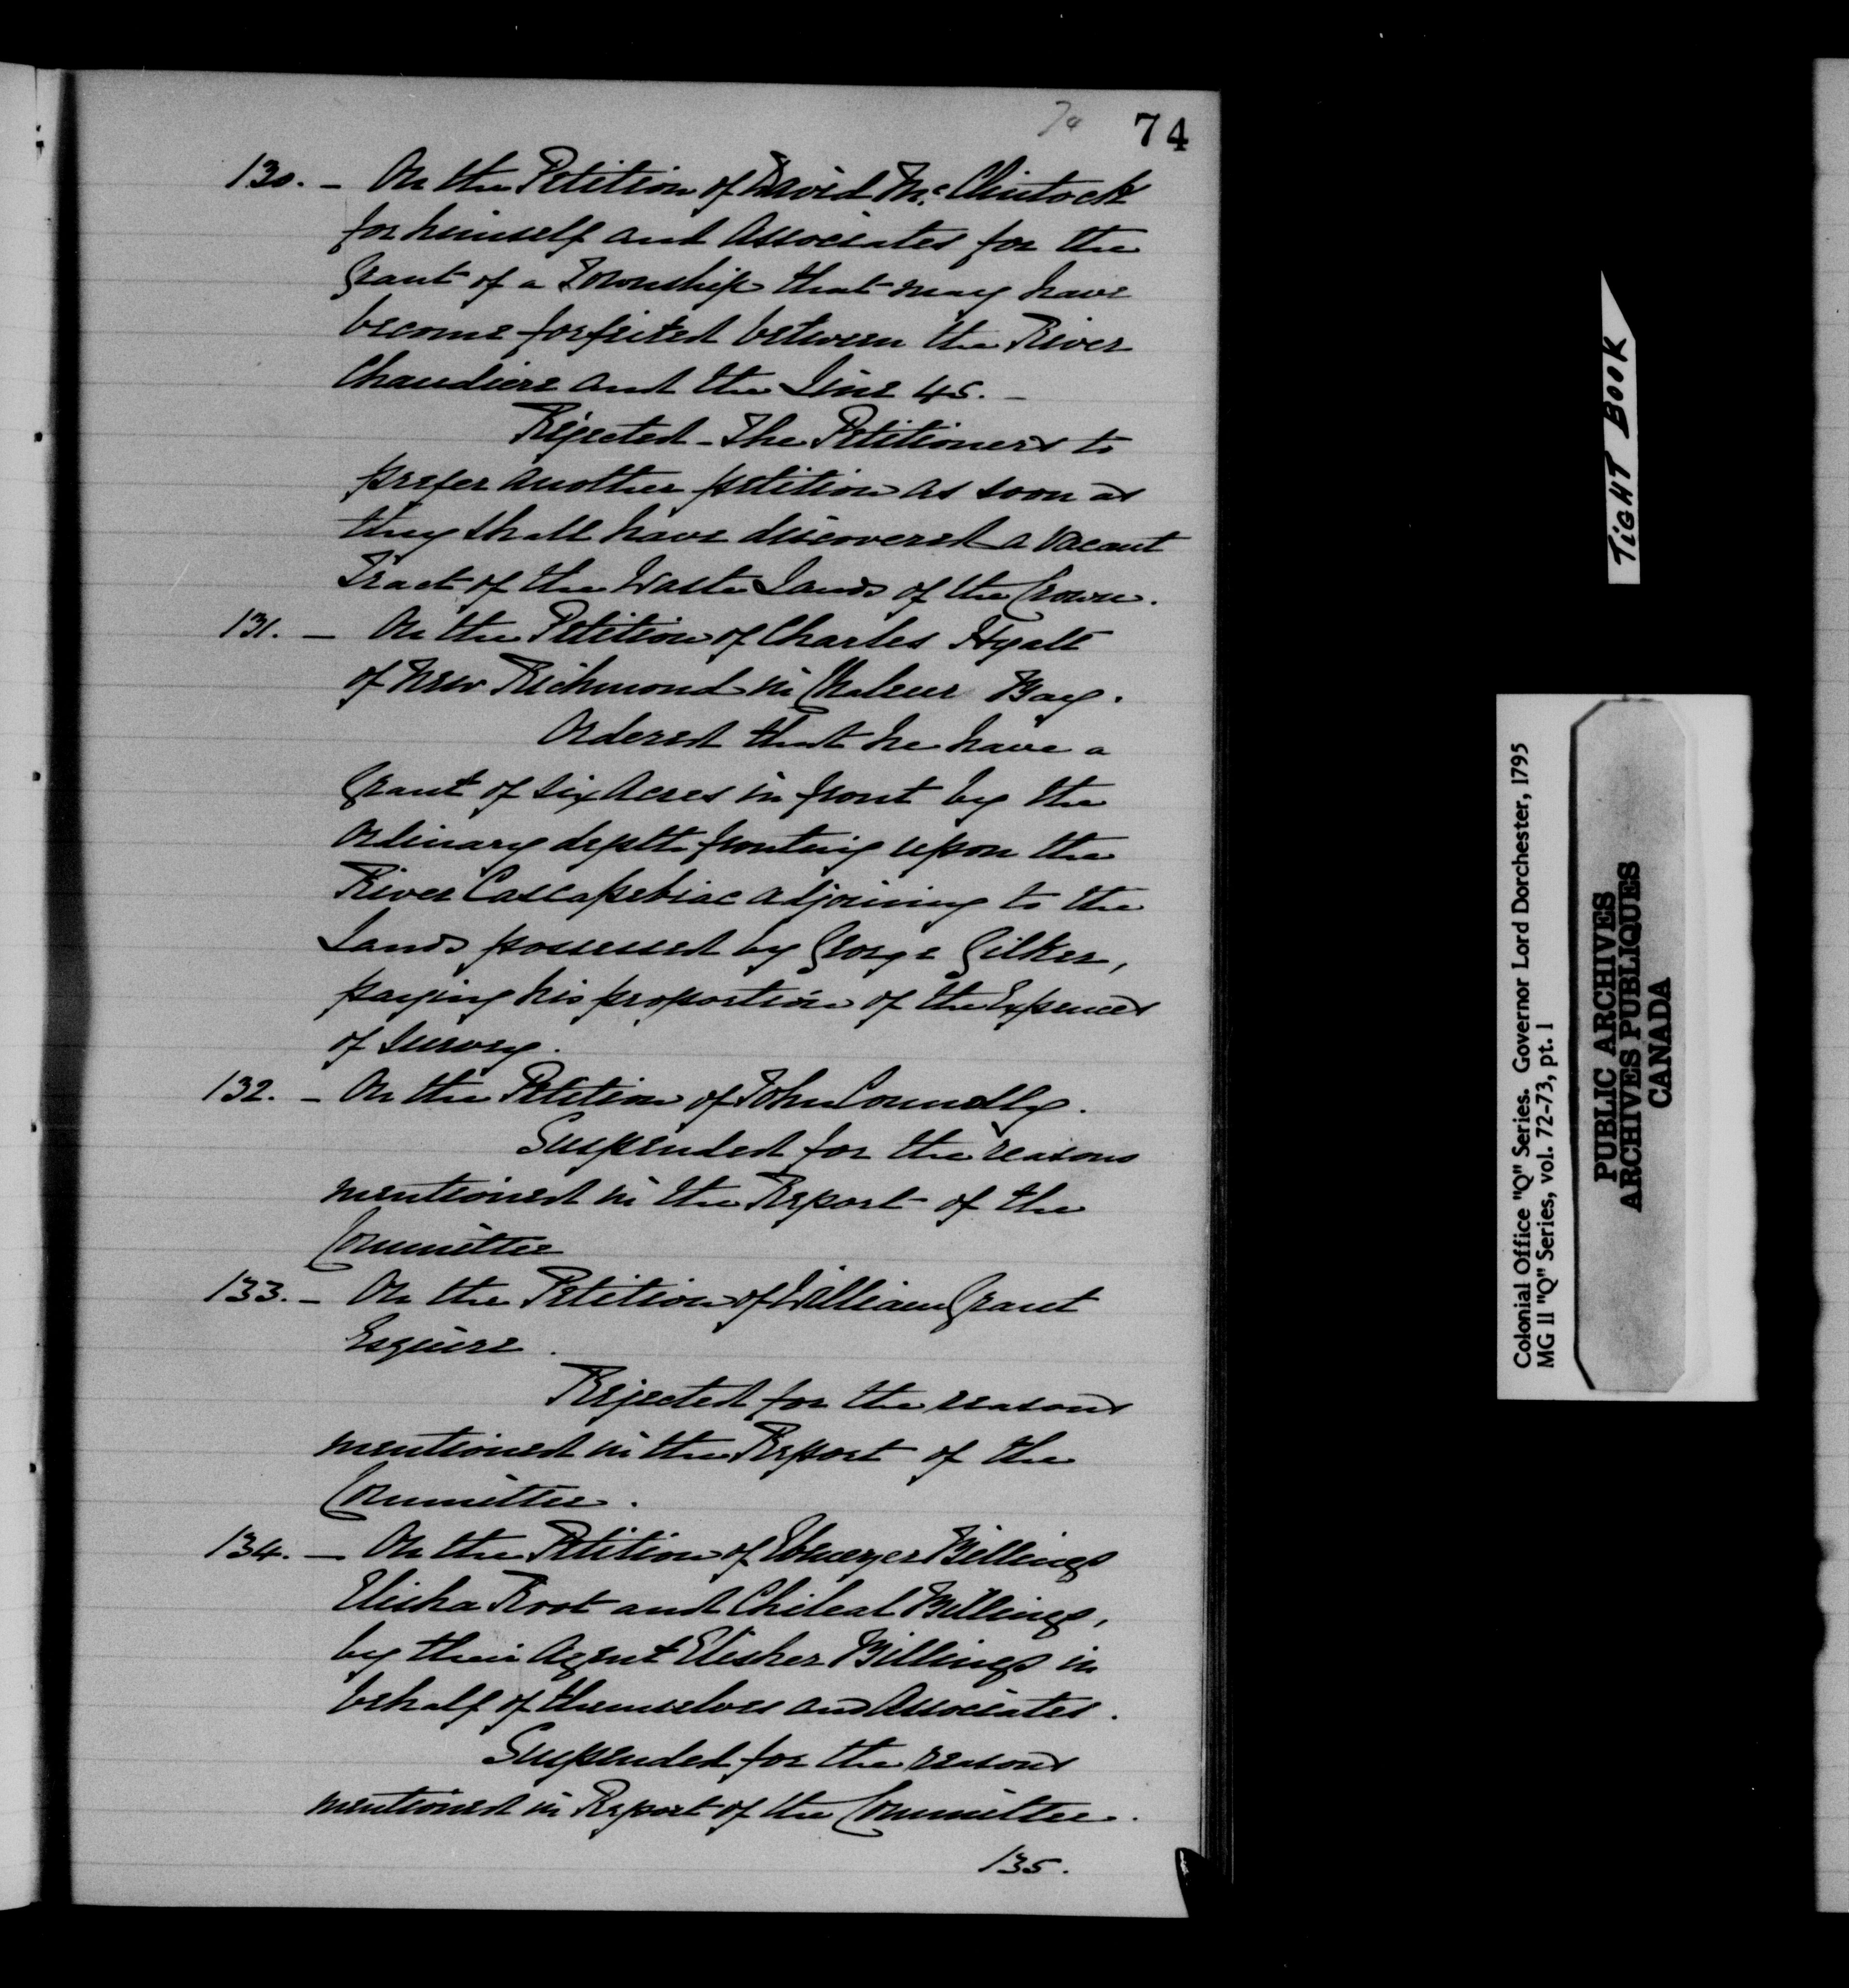 74
74
130. - On the Petition of David McClintock
for himself and Associates for the
Grant of a Township that may have
become forfeited between the River
Chaudiere and the Line 45. -
Rejected - The Petitioners to
prefer another petition as soon as
they shall have discovered a vacant
Tract of the Waste Lands of the Crown.
131. - On the Petition of Charles Hyatt
of New Richmond in Chaleur Bay.
Ordered that he have a
Grant of six Acres in front by the
ordinary depth fronting upon the
River Cascapebiac adjoining to the
Lands possessed by George Gilker,
paying his proportion of the Expences
of Survey.
132. - On the Petition of John Connelly.
Suspended for the reasons
mentioned in the Report of the
Committee
133. - On the Petition of William Grant
Esquire.
Rejected for the reasons
mentioned in the Report of the
Committee.
134. - On the Petition of Ebenezer Billings
Elisha Root and Chileal Billings,
by their Agent Elisher Billings in
behalf of themselves and Associates.
Suspended for the reasons
mentioned in Report of the Committee.
135.
TIGHT BOOK
Colonial Office "Q" Series. Governor Lord Dorchester, 1795
MG 11 "Q" Series, vol. 72-73, pt. 1
PUBLIC ARCHIVES
ARCHIVES PUBLIQUES
CANADA